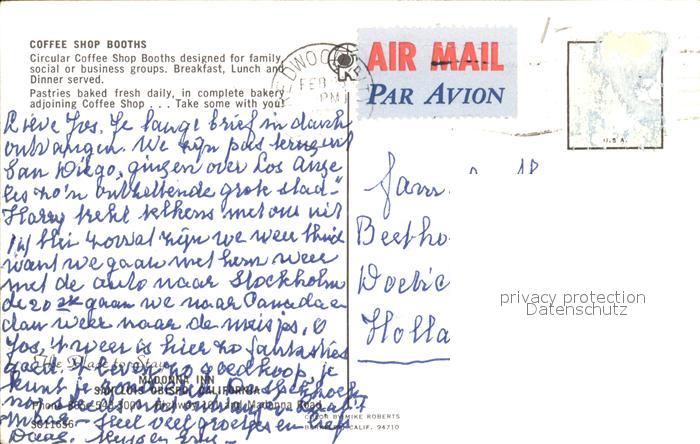 COFFEE SHOP BOOTHS
Circular Coffee Shop Booths designed for family,
social or business groups. Breakfast, Lunch and
Dinner served.
Pastries baked fresh daily, in complete bakery
adjoining Coffee Shop . . . Take some with you!
FEB
PM
AIR MAIL
PAR AVION
U.S.A.
Lieve Jos. Je lange brief in dank
ontvangen. We zijn pas terug uit
San Diego, gingen over Los Ange
les zo'n ontzettende grote stad
Harry trekt telkens met ons uit
zijn we weer thuis
want we gaan met hem weer
met de auto naar Stockholm
de 20 ste gaan we naar Canada en
dan weer naar de meisjes, O
Jos, 't weer is hier zo fantasties
goed. 't leven zo goedkoop, je
kunt je
The Place to Stay
MADONNA INN
SAN LUIS OBISPO, CALIFORNIA
Phone 805-543-3000 Highway 101 and Madonna Road
S611656
Heel veel groetjes en
COLOR BY MIKE ROBERTS
BERKELEY, CALIF. 94710
Fam.
Beetho
Doetic
Holla
privacy protection
Datenschutz